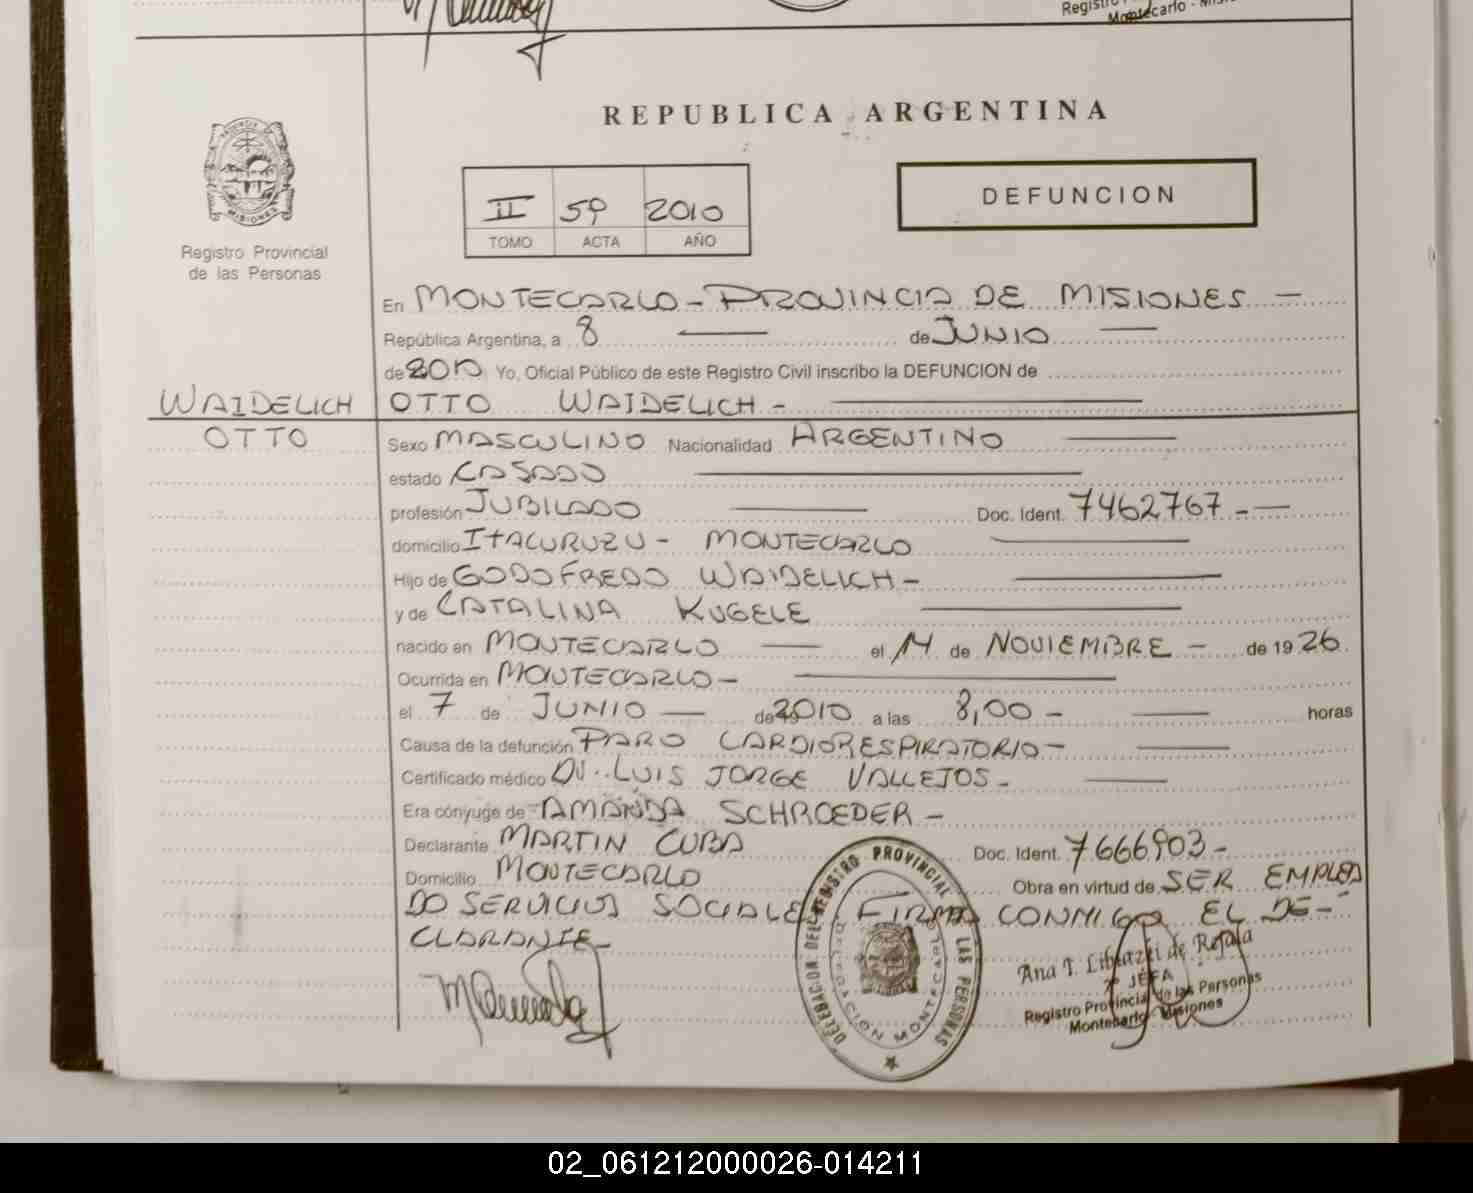 Registro
Montecarlo - Mis
REPUBLICA ARGENTINA
PROVINCIA DE
MISIONES
Registro Provincial
de las Personas
II 59 2010
TOMO ACTA AÑO
DEFUNCION
En MONTECARLO - PROVINCIA DE MISIONES -
República Argentina, a 8 de JUNIO
de 2010 Yo, Oficial Público de este Registro Civil inscribo la DEFUNCION de
WAIDELICH OTTO WAIDELICH -
OTTO Sexo MASCULINO Nacionalidad ARGENTINO
estado CASADO
profesión JUBILADO Doc. Ident. 7462767 -
domicilio ITACURUZU - MONTECARLO
Hijo de GODOFREDO WAIDELICH -
y de CATALINA KUGELE
nacido en MONTECARLO el 14 de NOVIEMBRE - de 1926
Ocurrida en MONTECARLO -
el 7 de JUNIO de 2010 a las 8,00 - horas
Causa de la defunción PARO CARDIORESPIRATORIO -
Certificado médico Dr. LUIS JORGE VALLEJOS -
Era cónyuge de AMANDA SCHROEDER -
Declarante MARTIN CUBA Doc. Ident. 7666903 -
Domicilio MONTECARLO Obra en virtud de SER EMPLEA
DO SERVICIOS SOCIALES. FIRMA CONMIGO EL DE-
CLARANTE -
DELEGACION DEL REGISTRO PROVINCIAL DE LAS PERSONAS
DELEGACION MONTECARLO
Ana T. de Rojala
JEFA
Registro Provincial de las Personas
Montecarlo - Misiones
02_061212000026-014211